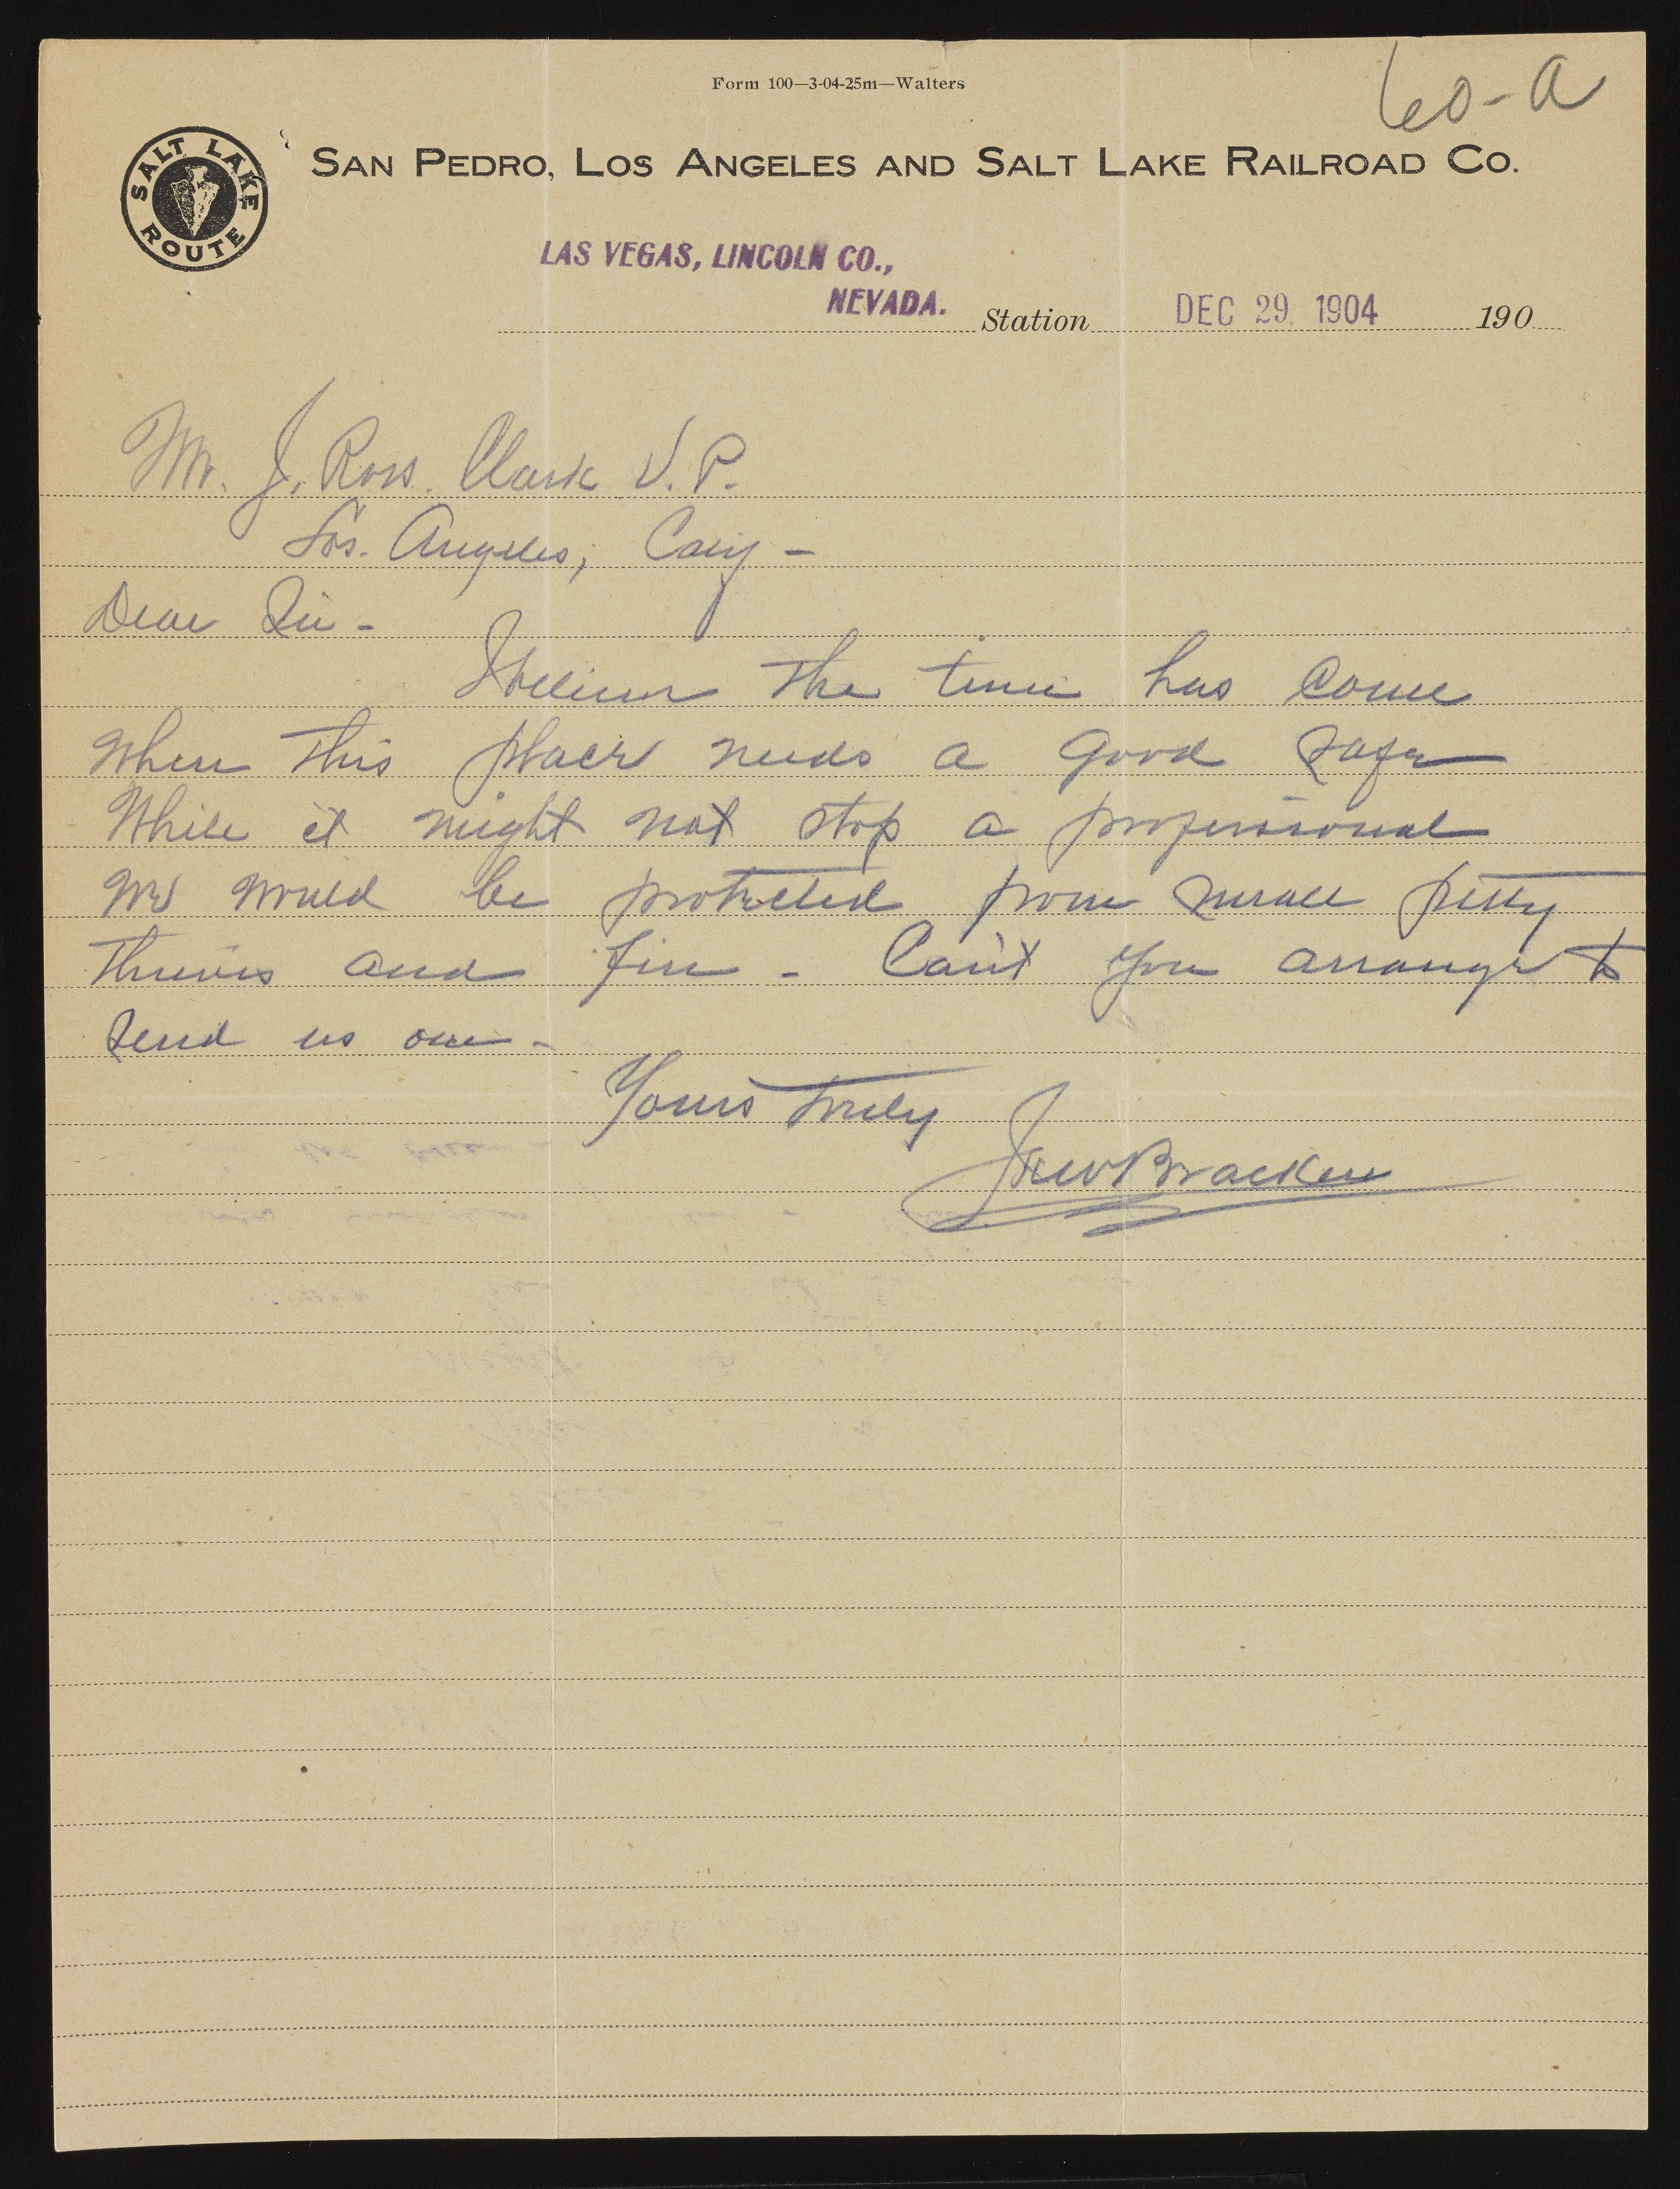 Form 100—3-04-25m—Walters
60-a
SALT LAKE ROUTE
SAN PEDRO, LOS ANGELES AND SALT LAKE RAILROAD CO.
LAS VEGAS, LINCOLN CO.,
NEVADA.
Station DEC 29 1904 190
Mr. J. Ross. Clark V.P.
Los. Angeles,
Dear Sir -
I believe the time has come
when this place needs a good safe
While it might not stop a professional
we would be protected from small petty
thieves and fire - Can't you arrange to
send us one -
Yours truly
Jno W Bracken